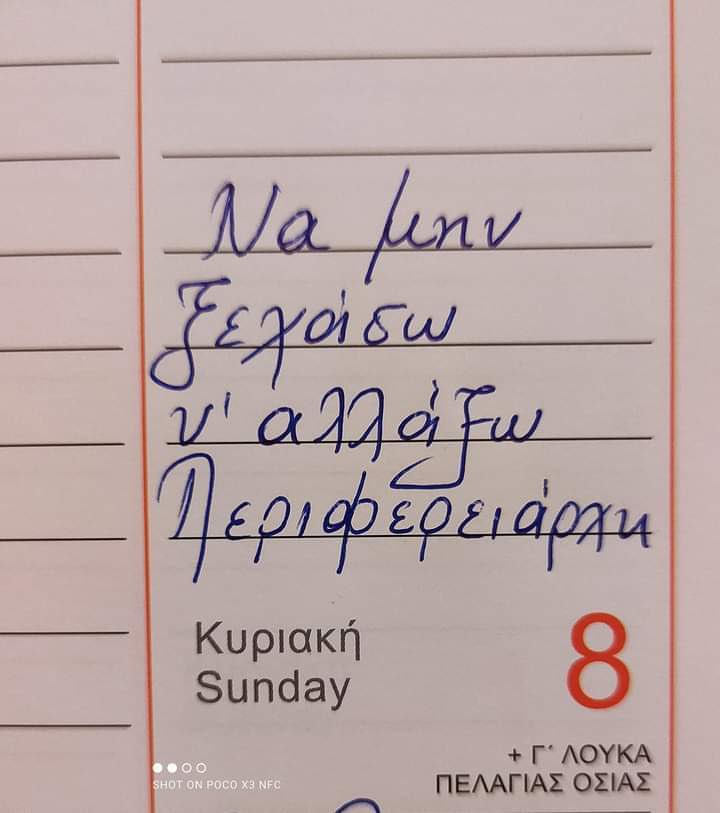 Να μην
ξεχάσω
ν' αλλάξω
Περιφερειάρχη
Κυριακή
Sunday
8
+ Γ΄ ΛΟΥΚΑ
ΠΕΛΑΓΙΑΣ ΟΣΙΑΣ
SHOT ON POCO X3 NFC